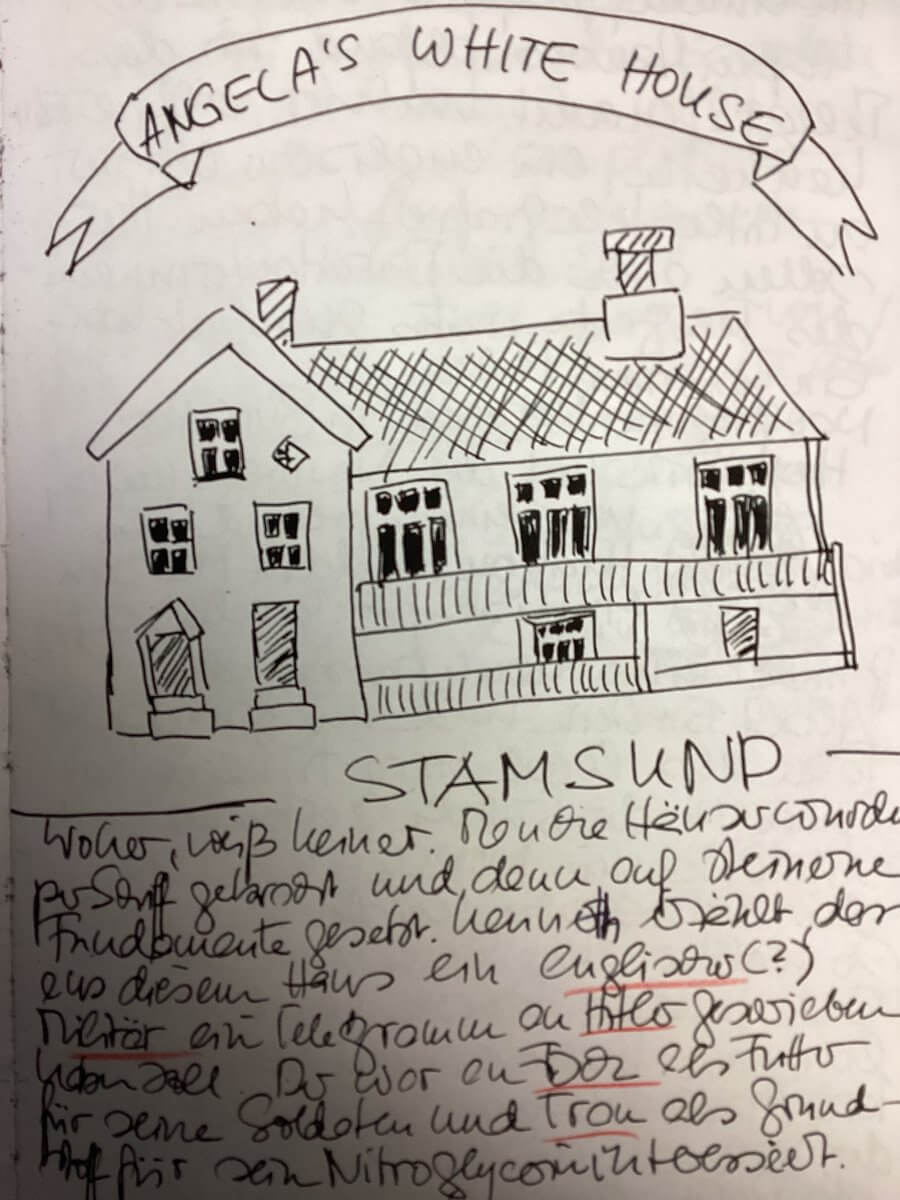 ANGELA'S WHITE HOUSE
STAMSUND
woher, weiß keiner. Manche Häuser wurde
per Schiff gebracht und dann auf steinerne
Fundamente gesetzt. Kenneth erzählt, dass
aus diesem Haus ein englischer (?)
Militär ein Telegramm an Hitler geschrieben
haben soll. Der war an Tran als Futter
für seine Soldaten und Tran als Grund-
stoff für sein Nitroglycerin interessiert.